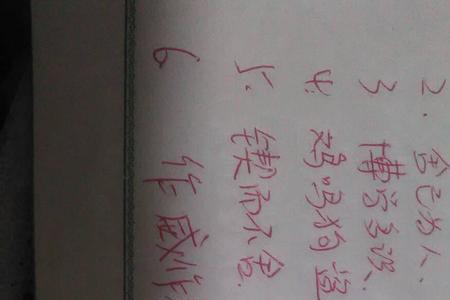 2. 舍己为人.
3 博学多识.
4. 鸡鸣狗盗
5. 锲而不舍.
6 作威作